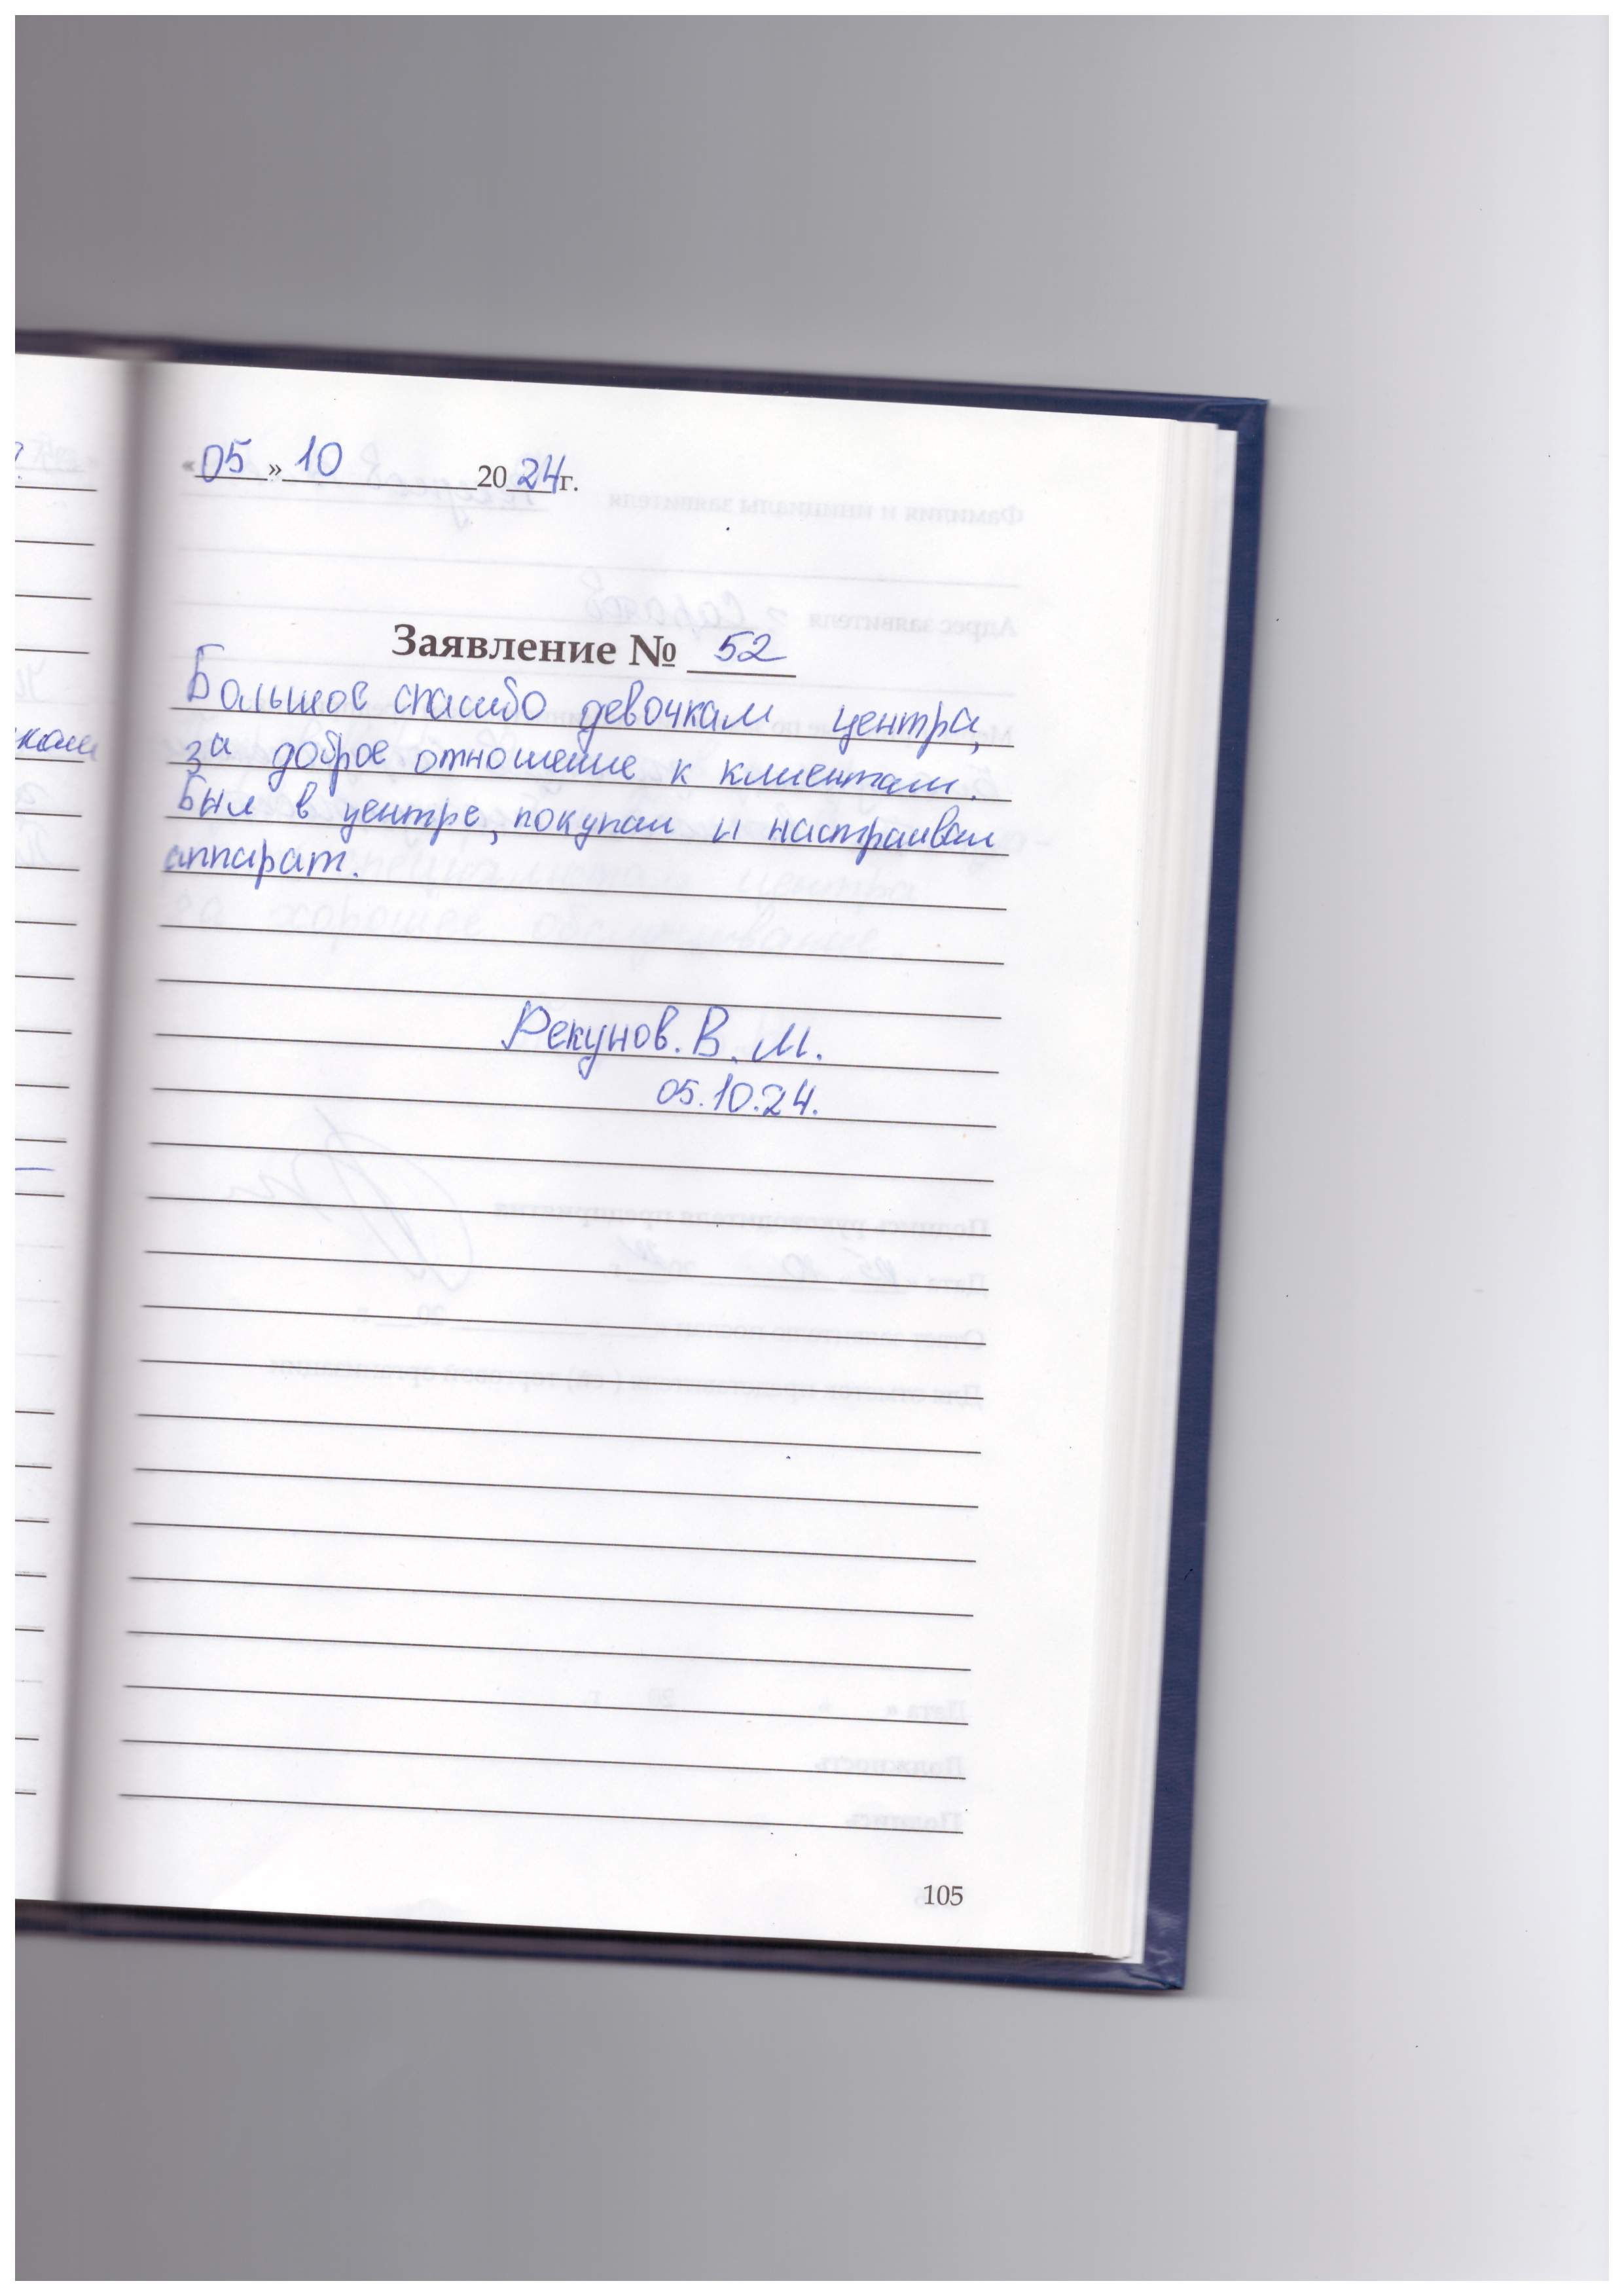 «05» 10 2024 г.
Заявление № 52
Большое спасибо девочкам центра,
за доброе отношение к клиентам.
Был в центре, покупал и настраивал
аппарат.
Рекунов. В. М.
05.10.24.
105